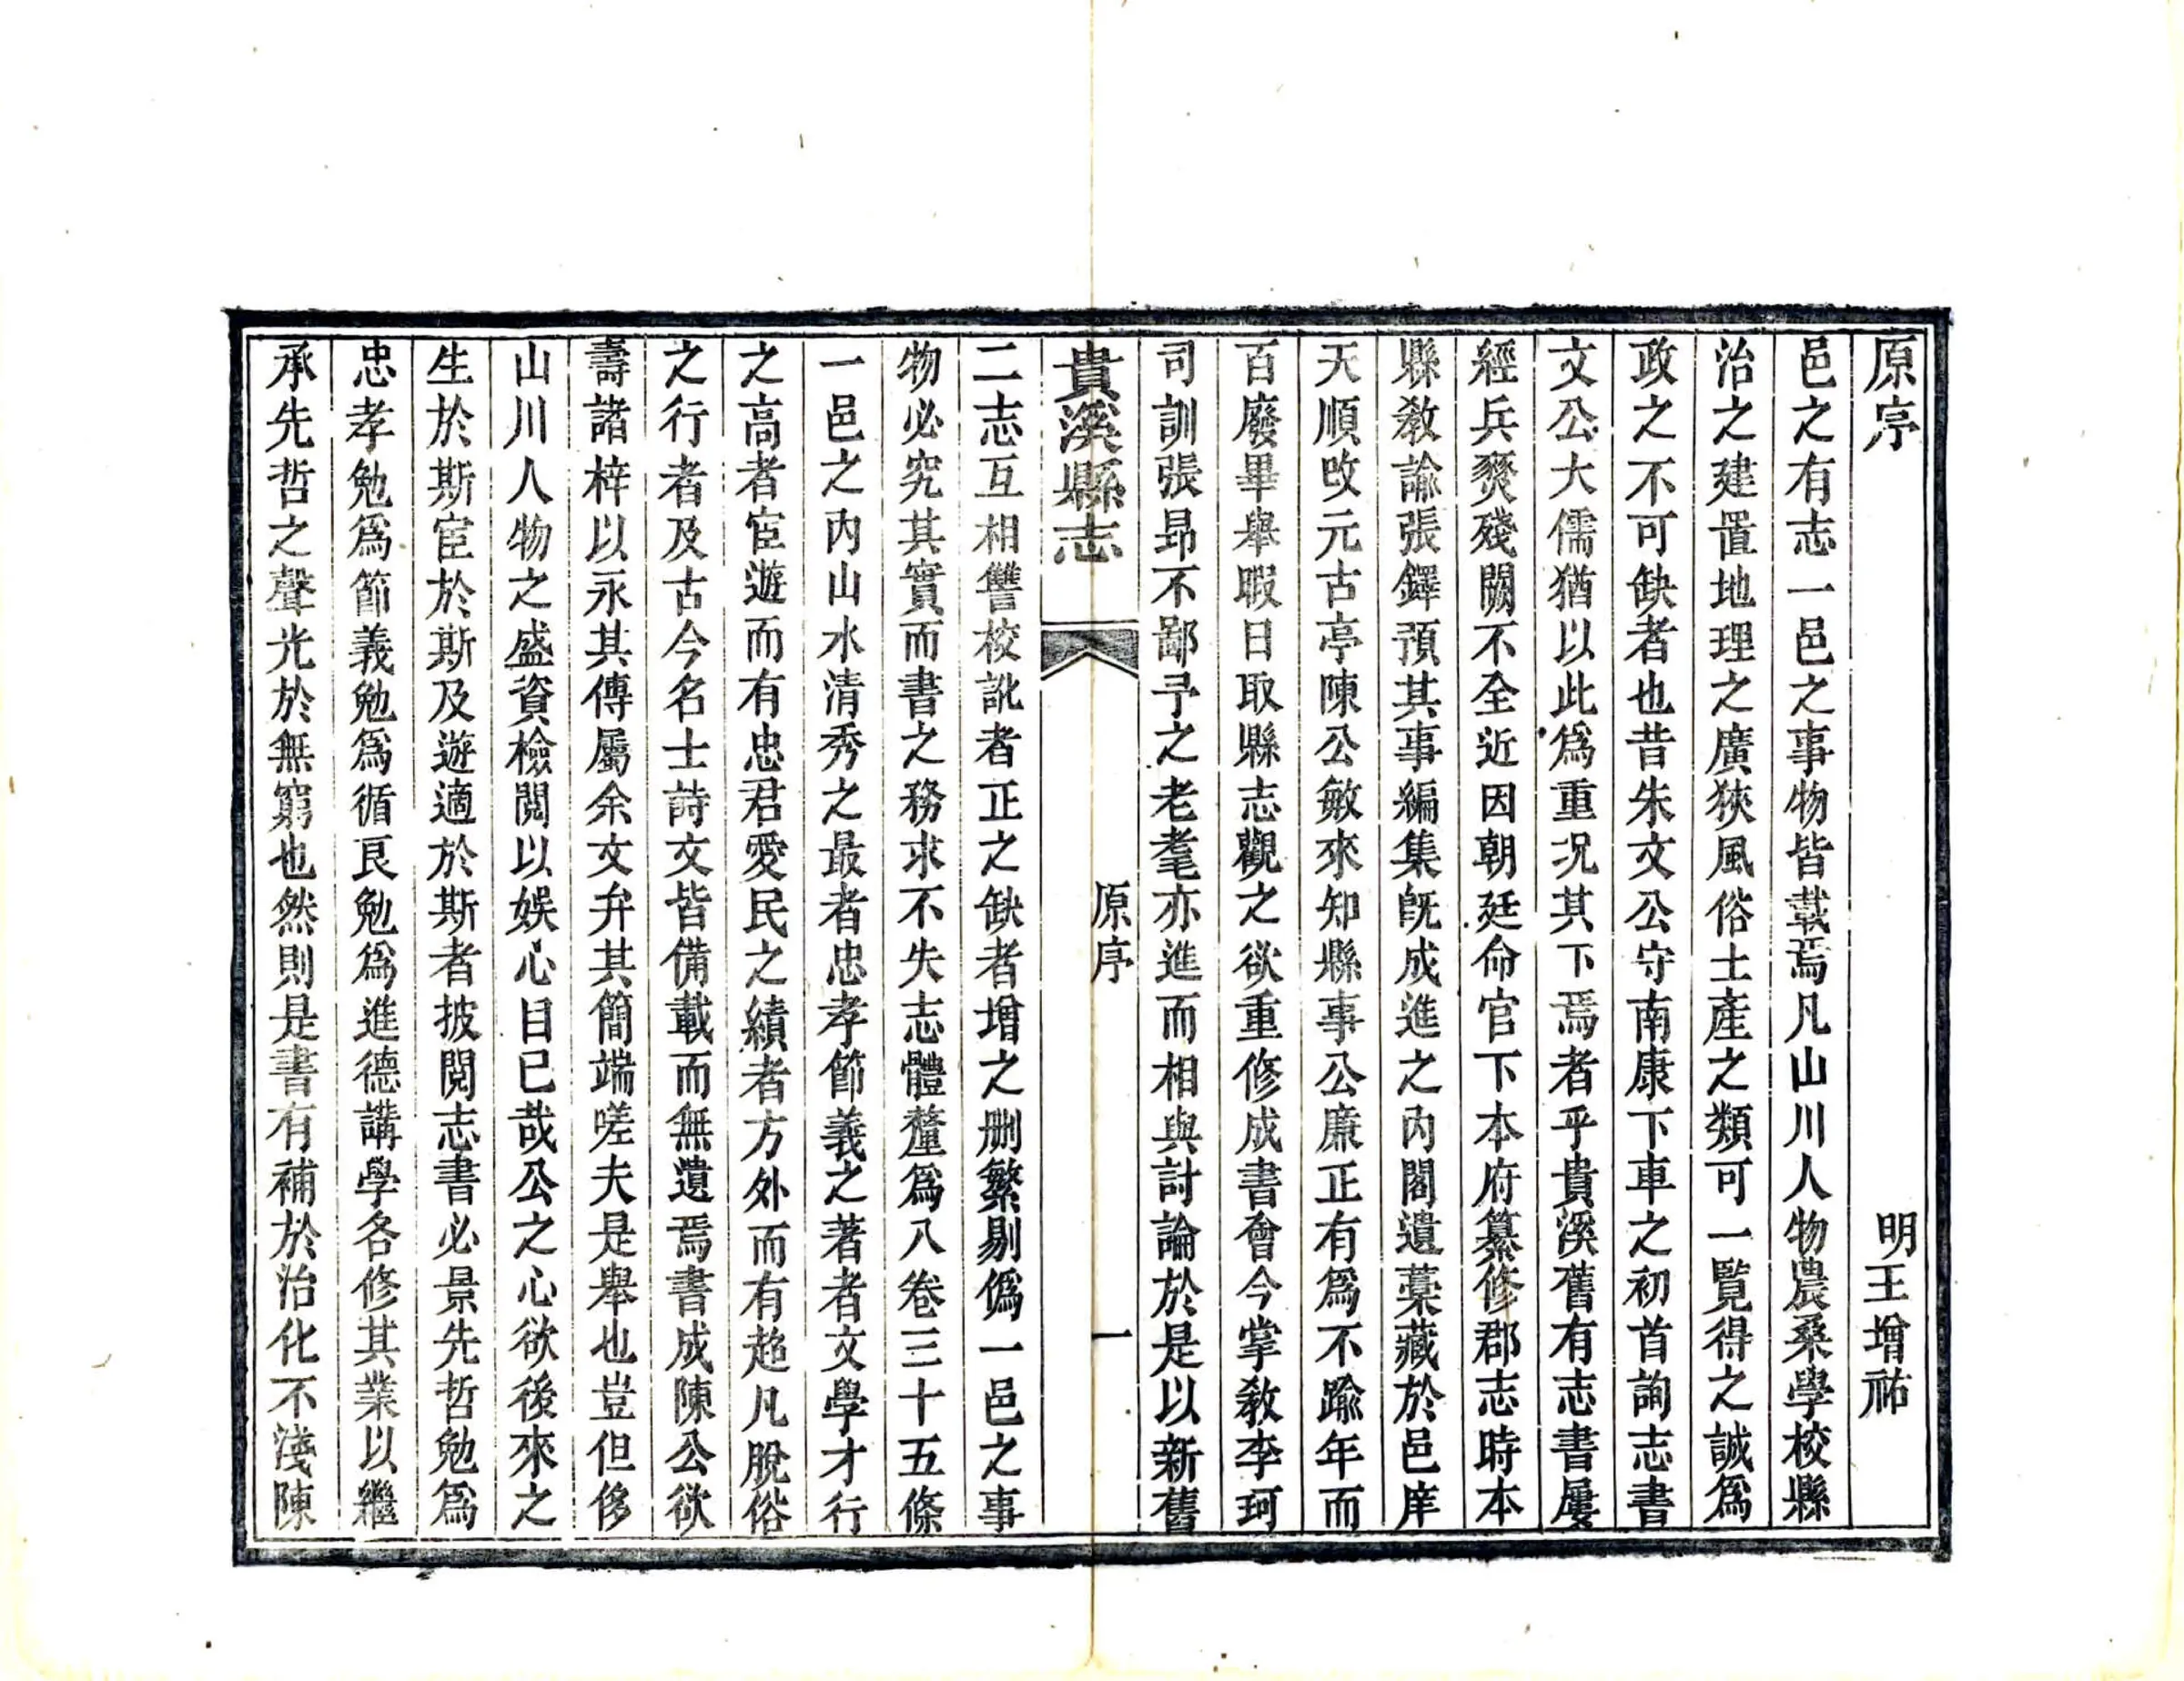 原序
明王增祐
邑之有志一邑之事物皆載焉凡山川人物農桑學校縣
治之建置地理之廣狹風俗土產之類可一覽得之誠爲
政之不可缺者也昔朱文公守南康下車之初首詢志書
文公大儒猶以此爲重况其下焉者乎貴溪舊有志書屢
經兵燹殘闕不全近因朝廷命官下本府纂修郡志時本
縣敎諭張鐸預其事編集旣成進之內閣遺藁藏於邑庠
天順改元古亭陳公敏來知縣事公廉正有爲不踰年而
百廢畢舉暇日取縣志觀之欲重修成書會今掌敎李珂
司訓張昻不鄙予之老耄亦進而相與討論於是以新舊
貴溪縣志
原序
一
二志互相讐校訛者正之缺者增之删繁剔僞一邑之事
物必究其實而書之務求不失志體釐爲八卷三十五條
一邑之內山水清秀之最者忠孝節義之著者文學才行
之高者宦遊而有忠君愛民之績者方外而有超凡脫俗
之行者及古今名士詩文皆備載而無遺焉書成陳公欲
壽諸梓以永其傳屬余文弁其簡端嗟夫是舉也豈但侈
山川人物之盛資檢閱以娛心目已哉公之心欲後來之
生於斯宦於斯及遊適於斯者披閱志書必景先哲勉爲
忠孝勉爲節義勉爲循良勉爲進德講學各修其業以繼
承先哲之聲光於無窮也然則是書有補於治化不淺陳